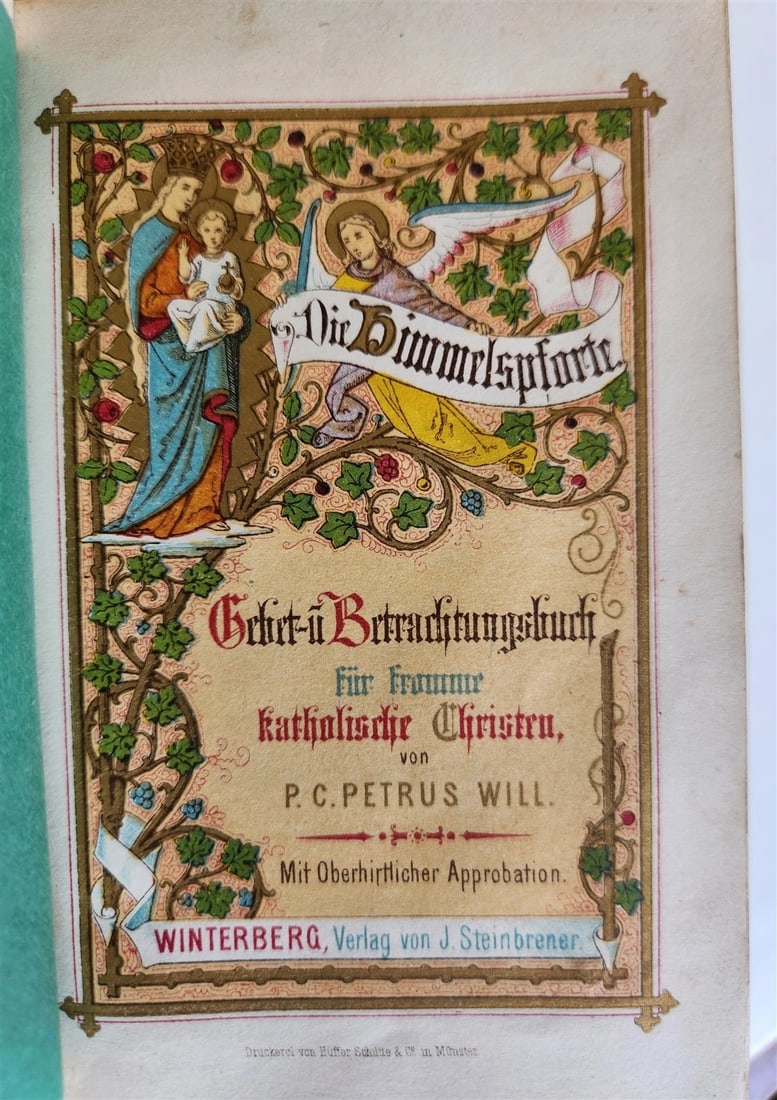 Die Himmelspforte.
Gebet-ū Betrachtungsbuch
für fromme
katholische Christen,
von
P. C. PETRUS WILL.
Mit Oberhirtlicher Approbation.
WINTERBERG, Verlag von J. Steinbrener.
Druckerei von Hüffer Schütte & Cº in Münster